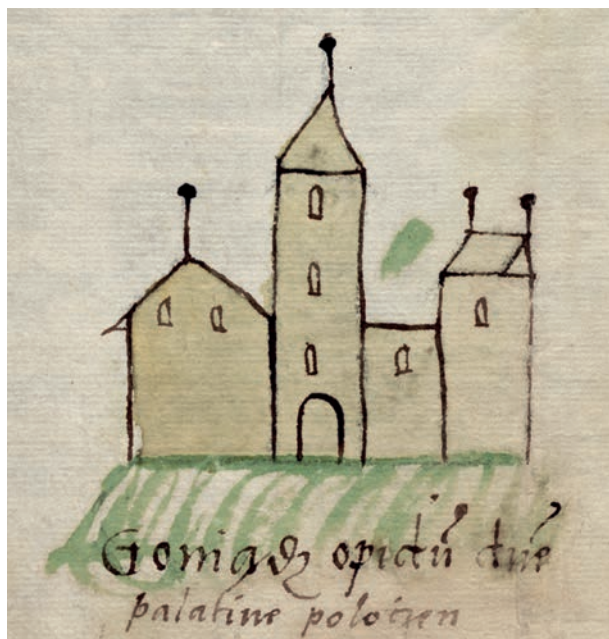 Goniądz opidū dn̄e
palatine polocien